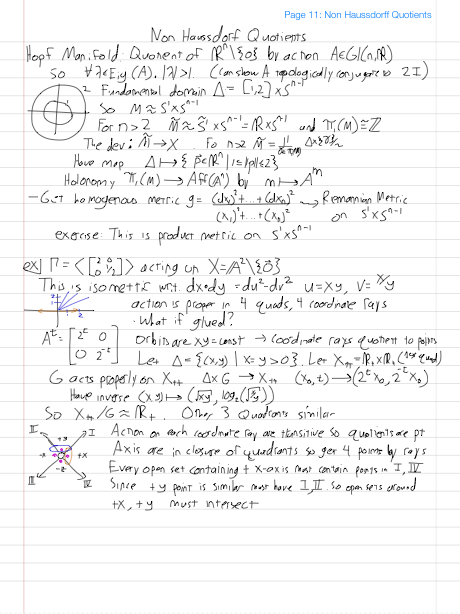 Page 11: Non Haussdorff Quotients
Non Haussdorff Quotients
Hopf Manifold: Quotient of ℝⁿ\{0} by action A∈Gl(n,ℝ)
So ∀ λ∈Eig(A), |λ|>1. (Can show A topologically conjugate to 2I)
Fundamental domain Δ = [1,2] × Sⁿ⁻¹
So M ≈ S¹×Sⁿ⁻¹
For n>2 M̃ ≈ S̃¹×Sⁿ⁻¹ = ℝ×Sⁿ⁻¹ and π₁(M) ≅ ℤ
The dev: M̃ → X. For n>2 M̃ =
Have map Δ ↦ { p∈ℝⁿ | 1≤|p|≤2 }
Holonomy π₁(M) → Aff(Aⁿ) by n ↦ Aⁿ
- Get homogenous metric g = (dx₁)²+...+(dxₙ)² / (x₁)²+...+(xₙ)² → Riemannian Metric on S¹×Sⁿ⁻¹
exercise: This is product metric on S¹×Sⁿ⁻¹
ex] Γ = <[2 0 0 1/2]> acting on X = A²\{0}
This is isometric w.r.t. dx·dy = du²-dv² u=xy, v=x/y
action is proper in 4 quads, 4 coordinate rays
· What if glued?
Aᵗ = [2ᵗ 0 0 2⁻ᵗ] Orbits are xy=const → coordinate rays quotient to points
Let Δ = {(x,y) | x=y>0}. Let X₊₊ = ℝ₊×ℝ₊ (1st quad)
G acts properly on X₊₊ Δ×G → X₊₊ (x₀,t) → (2ᵗx₀, 2⁻ᵗx₀)
Have inverse (x,y) ↦ (√xy, log₂(√x/y))
So X₊₊/G ≈ ℝ₊. Other 3 Quadrants similar
II +y I
-x +x
-y
III IV
Action on each coordinate ray are transitive so quotients are pt
Axis in closure of quadrants so get 4 points by rays
Every open set containing + x-axis must contain points in I, IV
Since +y point is similar must have I, II so open sets around
+x, +y must intersect